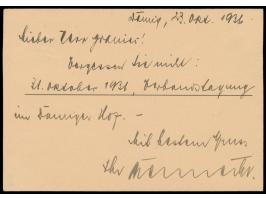 Danzig, 23. Okt. 1931.
Lieber Herr Granier!
Vergessen Sie nicht:
31. Oktober 1931, Verbandstagung
im Danziger Hof. –
Mit bestem Gruss
Ihr